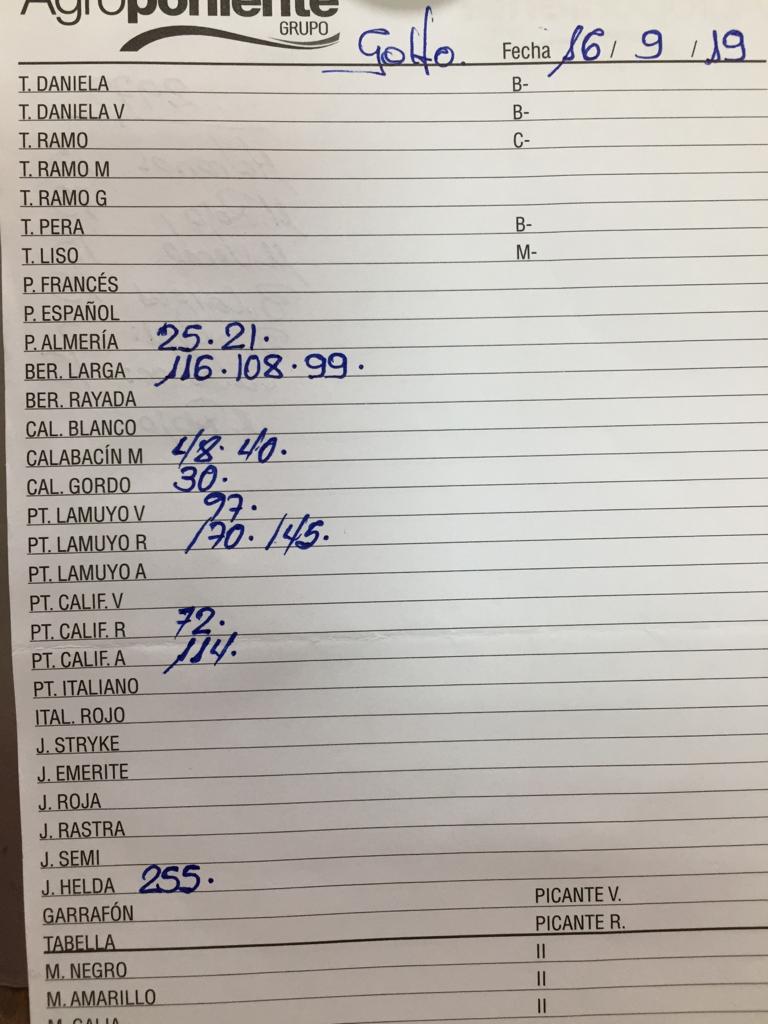 Agroponiente
GRUPO
Golfo. Fecha 16 / 9 / 19
T. DANIELA B-
T. DANIELA V B-
T. RAMO C-
T. RAMO M
T. RAMO G
T. PERA B-
T. LISO M-
P. FRANCÉS
P. ESPAÑOL
P. ALMERÍA 25. 21.
BER. LARGA 116. 108. 99.
BER. RAYADA
CAL. BLANCO
CALABACÍN M 48. 40.
CAL. GORDO 30.
PT. LAMUYO V 97.
PT. LAMUYO R 170. 145.
PT. LAMUYO A
PT. CALIF. V
PT. CALIF. R 72.
PT. CALIF. A 114.
PT. ITALIANO
ITAL. ROJO
J. STRYKE
J. EMERITE
J. ROJA
J. RASTRA
J. SEMI
J. HELDA 255.
GARRAFÓN PICANTE V.
TABELLA PICANTE R.
M. NEGRO II
M. AMARILLO II
M. GALIA II